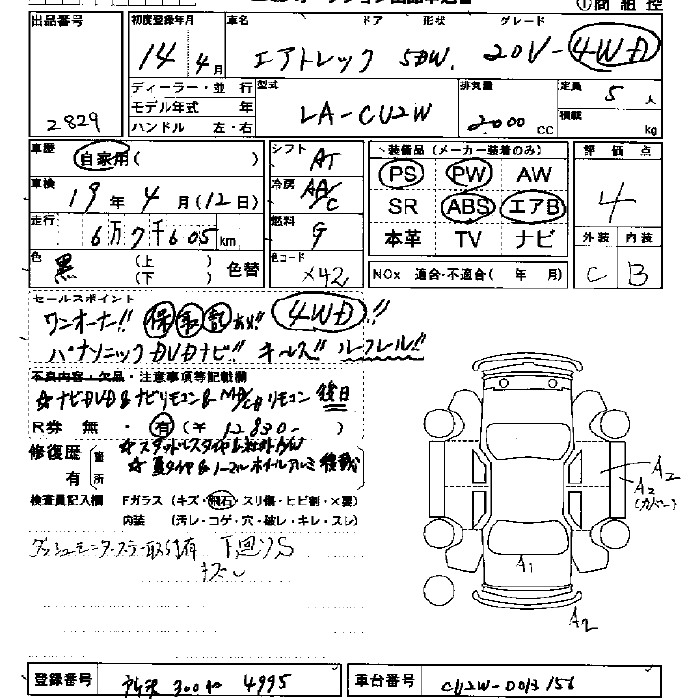 ①商 組 控
出品番号 初度登録年月 車名 ドア 形状 グレード
14年 4月 エアトレック 5DW. 20V-4WD
ディーラー・並 行 型式 排気量 定員 5 人
モデル年式 年 LA-CU2W 2000 CC 積載 kg
2829 ハンドル 左・右
車歴 自家用( ) シフト AT 装備品 (メーカー装着のみ) 評 価 点
車検 19年 4月(12日) 冷房 AA/C PS PW AW 4
走行 6万7千605km 燃料 G SR ABS エアB 外装 内装
色 黒 (上 ) (下 ) 色替 色コード X42 本革 TV ナビ C B
NOx 適合・不適合( 年 月)
セールスポイント
ワンオーナー!! 保 取 記 あり!! 4WD!!
パナソニックDVDナビ!! キーレス!! ルーフレール!!
不良内容・欠品・注意事項等記載欄
☆ナビDVD&ナビリモコン& MD/CDリモコン 後日
R券 無 ・ 有 (¥ 12830- )
修復歴 箇所 ☆スタッドレスタイヤ&社外AW
有 ☆夏タイヤ&ノーマルホイールアルミ後載
検査員記入欄 Fガラス (キズ・飛石・スリ傷・ヒビ割・×要)
内装 (汚レ・コゲ・穴・破レ・キレ・スレ)
ダッシュモニターステー取付有 下廻りS
A2
A2
(カバー)
A1
A2
登録番号 所沢 300 4995 車台番号 CU2W-0013156